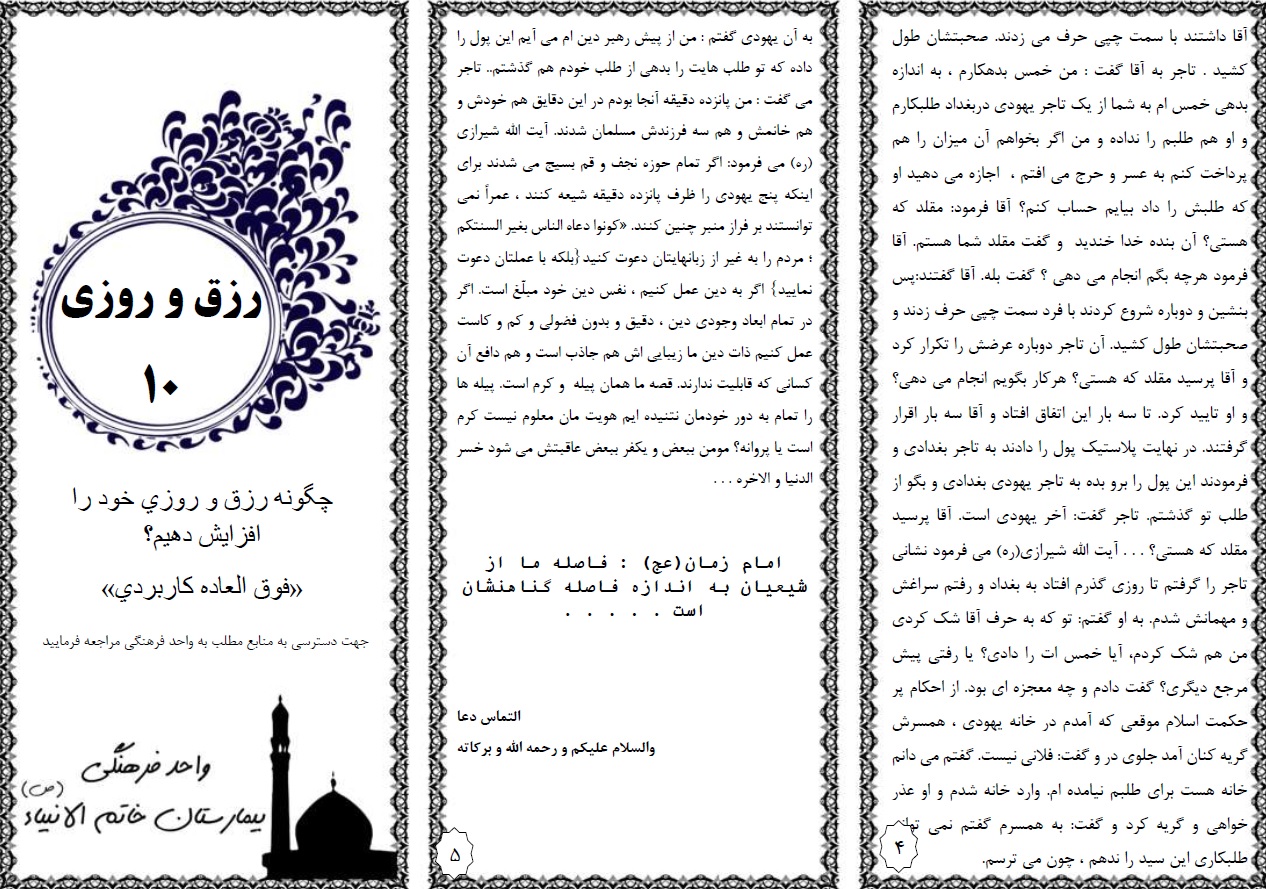 آقا داشتند با سمت چپی حرف می زدند. صحبتشان طول
کشید . تاجر به آقا گفت : من خمس بدهکارم ، به اندازه
بدهی خمس ام به شما از یک تاجر یهودی دربغداد طلبکارم
و او هم طلبم را نداده و من اگر بخواهم آن میزان را هم
پرداخت کنم به عسر و حرج می افتم ، اجازه می دهید او
که طلبش را داد بیایم حساب کنم؟ آقا فرمود: مقلد که
هستی؟ آن بنده خدا خندید و گفت مقلد شما هستم. آقا
فرمود هرچه بگم انجام می دهی ؟ گفت بله. آقا گفتند:پس
بنشین و دوباره شروع کردند با فرد سمت چپی حرف زدند و
صحبتشان طول کشید. آن تاجر دوباره عرضش را تکرار کرد
و آقا پرسید مقلد که هستی؟ هرکار بگویم انجام می دهی؟
و او تایید کرد. تا سه بار این اتفاق افتاد و آقا سه بار اقرار
گرفتند. در نهایت پلاستیک پول را دادند به تاجر بغدادی و
فرمودند این پول را برو بده به تاجر یهودی بغدادی و بگو از
طلب تو گذشتم. تاجر گفت: آخر یهودی است. آقا پرسید
مقلد که هستی؟ . . . آیت الله شیرازی(ره) می فرمود نشانی
تاجر را گرفتم تا روزی گذرم افتاد به بغداد و رفتم سراغش
و مهمانش شدم. به او گفتم: تو که به حرف آقا شک کردی
من هم شک کردم، آیا خمس ات را دادی؟ یا رفتی پیش
مرجع دیگری؟ گفت دادم و چه معجزه ای بود. از احکام پر
حکمت اسلام موقعی که آمدم در خانه یهودی ، همسرش
گریه کنان آمد جلوی در و گفت: فلانی نیست. گفتم می دانم
خانه هست برای طلبم نیامده ام. وارد خانه شدم و او عذر
خواهی و گریه کرد و گفت: به همسرم گفتم نمی
طلبکاری این سید را ندهم ، چون می ترسم.
۴
به آن یهودی گفتم : من از پیش رهبر دین ام می آیم این پول را
داده که تو طلب هایت را بدهی از طلب خودم هم گذشتم.. تاجر
می گفت : من پانزده دقیقه آنجا بودم در این دقایق هم خودش و
هم خانمش و هم سه فرزندش مسلمان شدند. آیت الله شیرازی
(ره) می فرمود: اگر تمام حوزه نجف و قم بسیج می شدند برای
اینکه پنج یهودی را ظرف پانزده دقیقه شیعه کنند ، عمراً نمی
توانستند بر فراز منبر چنین کنند. «کونوا دعاه الناس بغیر السنتکم
؛ مردم را به غیر از زبانهایتان دعوت کنید{بلکه با عملتان دعوت
نمایید} اگر به دین عمل کنیم ، نفس دین خود مبلّغ است. اگر
در تمام ابعاد وجودی دین ، دقیق و بدون فضولی و کم و کاست
عمل کنیم ذات دین ما زیبایی اش هم جاذب است و هم دافع آن
کسانی که قابلیت ندارند. قصه ما همان پیله و کرم است. پیله ها
را تمام به دور خودمان نتنیده ایم هویت مان معلوم نیست کرم
است یا پروانه؟ مومن ببعض و یکفر ببعض عاقبتش می شود خسر
الدنیا و الاخره . . .
امام زمان(عج) : فاصله ما از
شیعیان به اندازه فاصله گناهنشان
است . . . . .
التماس دعا
والسلام علیکم و رحمه الله و برکاته
۵
رزق و روزی
۱۰
چگونه رزق و روزي خود را
افزایش دهیم؟
«فوق العاده کاربردي»
جهت دسترسی به منابع مطلب به واحد فرهنگی مراجعه فرمایید
واحد فرهنگی
بیمارستان خاتم الانبیاء (ص)